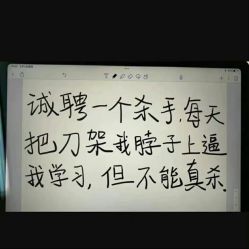 诚聘一个杀手,每天
把刀架我脖子上逼
我学习,但不能真杀.